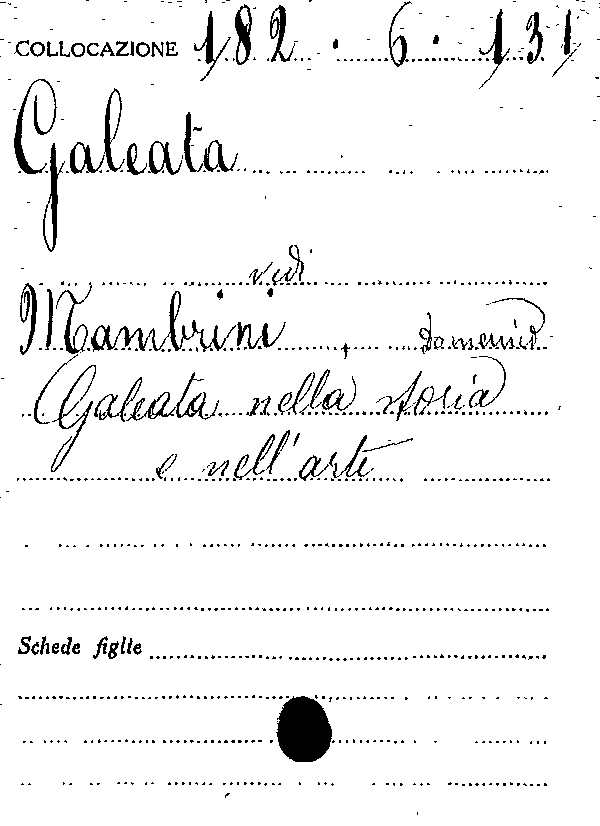 COLLOCAZIONE 182 . 6 . 131
Galeata
vedi
Mambrini, Domenico
Galeata nella storia
e nell'arte
Schede figlie